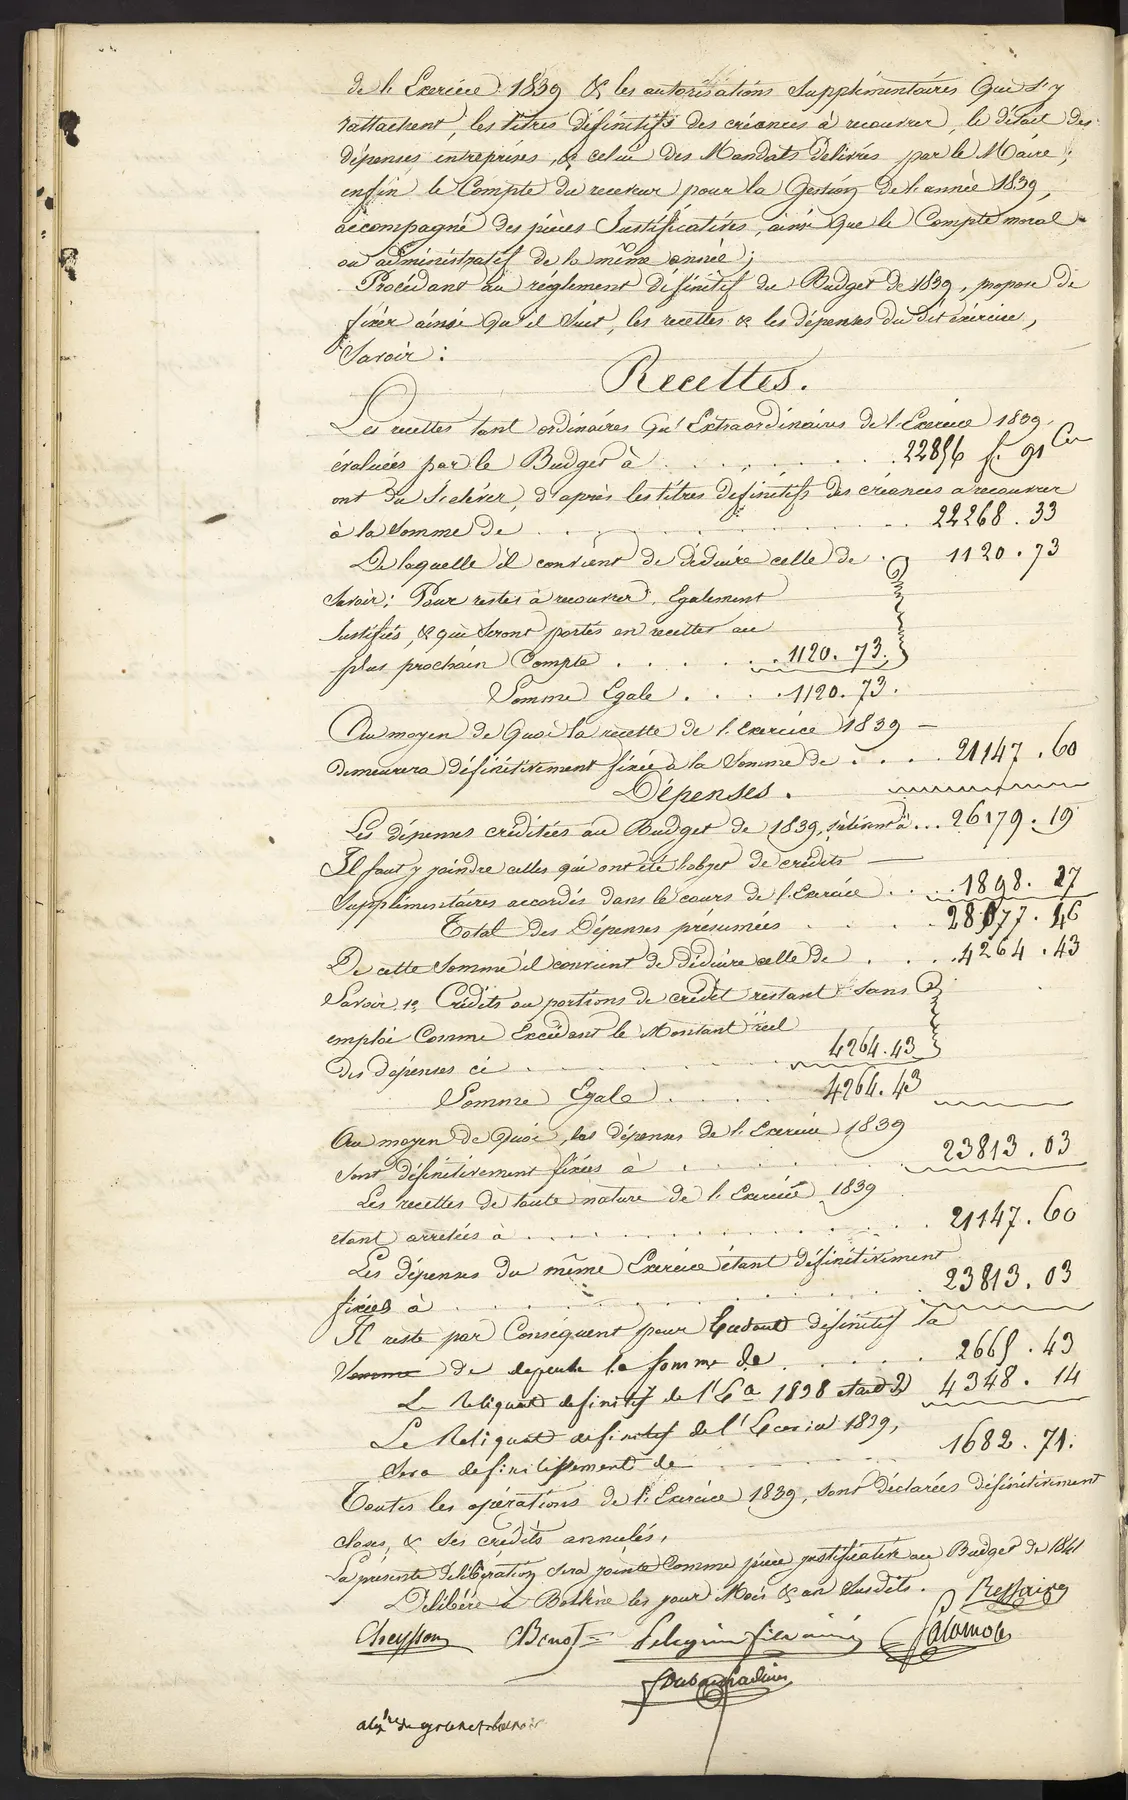 de l'Exercice 1839 & les autorisations Supplémentaires Qui s'y
rattachent, les titres définitifs des créances à recouvrer, le détail des
dépenses entreprises, & celui des Mandats Délivrés par le Maire;
enfin le Compte du receveur pour la Gestion de l'année 1839,
accompagné des pièces Justificatives, ainsi que le Compte moral
ou administratif de la même année;
Procédant au réglement définitif du Budget de 1839, propose de
fixer ainsi qu'il suit, les recettes & les dépenses du dit éxércice,
Savoir:
Recettes.
Les recettes tant ordinaires qu'Extraordinaires de l'Exercice 1839,
évaluées par le Budget à . . . . . . . 22856 f. 91 Cen
ont du s'éléver, d'après les titres définitifs des créances a recouvrer
à la Somme de . . . . . . . 22268 . 33
De laquelle il convient de déduire celle de . 1120 . 73
Savoir: Pour restes à recouvrer, Egalement
Justifiés, & qui seront portés en recettes au
plus prochain Compte . . . . . . 1120. 73.
Somme Egale . . . . 1120. 73.
Au moyen de Quoi la recette de l'exercice 1839 —
demeurera définitivement fixée à la Somme de . . . . 21147 . 60
Dépenses.
Les dépenses créditées au Budget de 1839, s'élèvent à . . . 26179. 19
Il faut y joindre celles qui ont été l'objet de crédits —
Supplémentaires accordés dans le cours de l'Exercice . . . . 1898. 27
Total des Dépenses présumées . . . . 28077. 46
De cette Somme il convient de déduire celle de . . . . 4264 . 43
Savoir 1o Crédits ou portions de crédit restant Sans
emploi Comme Excédant le Montant réel
des dépenses ci . . . . . . 4264. 43
Somme Egale . . . . 4264. 43
Au moyen de Quoi, les dépenses de l'Exercice 1839
sont définitivement fixées à . . . . . . 23813 . 03
Les recettes de toute nature de l'Exercice 1839
etant arretées à . . . . . . . . . 21147. 60
Les dépenses du même Exercice étant définitivement
fixées à . . . . . . . . . 23813 . 03
Il reste par Conséquent pour Excédant définitif la
Somme de depense la somme de . . . . . . 2665 . 43
Le Reliquat definitif de l'Ex 1838 etant de 4348. 14
Le Reliquat definitif de l'Exercice 1839,
sera definitivement de . . . . . . 1682. 71.
Toutes les opérations de l'Exercice 1839, sont déclarées définitivement
closes, & ses crédits annulés,
La présente délibération sera jointe Comme pièce justificative au Budget de 1841
Délibéré à Bollène les jour Mois & an Susdits.
Cheysson